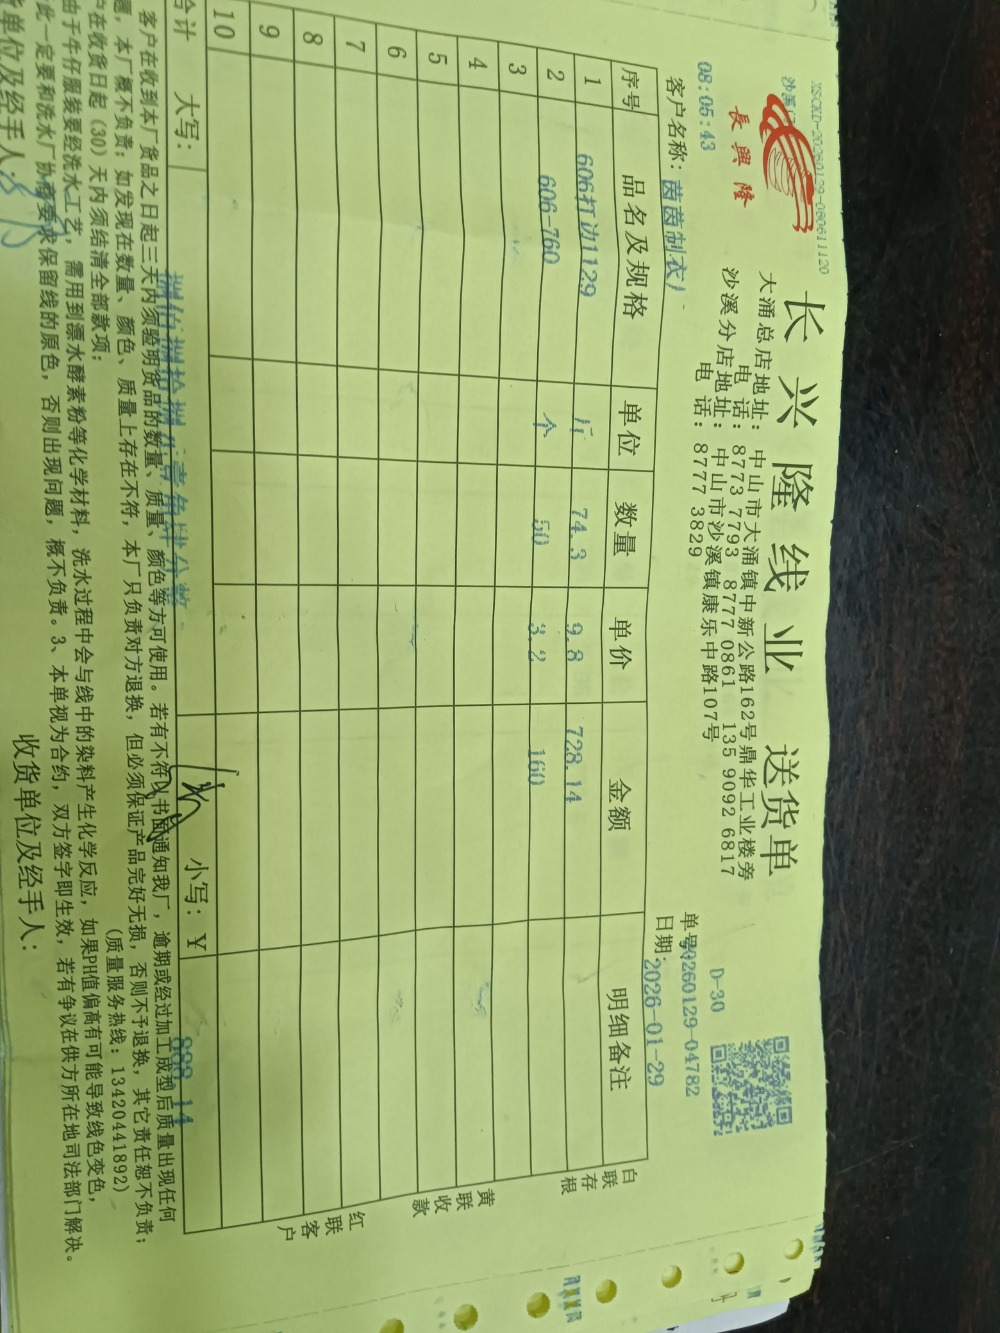 XSCKD-20260129-080611120
沙溪
長興隆
长兴隆线业 送货单
大涌总店地址: 中山市大涌镇中新公路162号鼎华工业楼旁
电 话: 8773 7793 8777 0861 135 9092 6817
沙溪分店地址: 中山市沙溪镇康乐中路107号
电 话: 8777 3829
D-30
08:05:43
单号 20260129-04782
客户名称: 茵茵制衣厂
日期: 2026-01-29
序号 品名及规格 单位 数量 单价 金额 明细备注
1 606打边1129 斤 74.3 9.8 728.14
2 606-760 个 50 3.2 160
3
4
5
6
7
8
9
10
合计 大写: 捌佰捌拾捌元壹角肆分整 小写: ¥ 888.14
白联存根
黄联收款
红联客户
客户在收到本厂货品之日起三天内须验明货品的数量、质量、颜色等方可使用。若有不符以书面通知我厂,逾期或经过加工成型后质量出现任何
题,本厂概不负责;如发现在数量、颜色、质量上存在不符,本厂只负责对方退换,但必须保证产品完好无损,否则不予退换,其它责任恕不负责;
户在收货日起(30)天内须结清全部款项;
(质量服务热线:13420441892)
由于牛仔服装要经洗水工艺,需用到漂水酵素粉等化学材料,洗水过程中会与线中的染料产生化学反应,如果PH值偏高有可能导致线色变色,
此一定要和洗水厂协商要求保留线的原色,否则出现问题,概不负责。3、本单视为合约,双方签字即生效,若有争议在供方所在地司法部门解决。
单位及经手人:
收货单位及经手人: